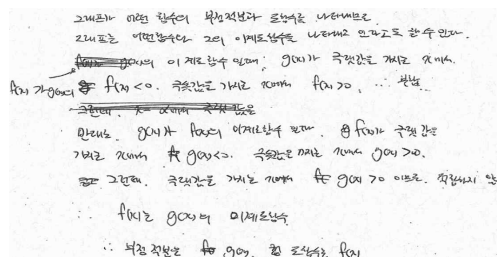 그래프가 어떤 함수의 부정적분과 도함수를 나타내므로
그래프는 어떤함수와 그의 이계도함수를 나타내고 있다고도 할 수 있다.
f(x)가 g(x)의 이계도함수 일때, g(x)가 극댓값을 가지는 x에서
f(x)<0. 극솟값을 가지는 x에서 f(x)>0, ∴
반대로 g(x)가 f(x)의 이계도함수 일때. f(x)가 극댓값을
가지는 x에서 g(x)<0. 극솟값을 가지는 x에서 g(x)>0.
그런데. 극댓값을 가지는 x에서 g(x)>0 이므로. 적합하지 않
∴ f(x)는 g(x)의 이계도함수
∴ 부정적분은 g(x), 도함수는 f(x)